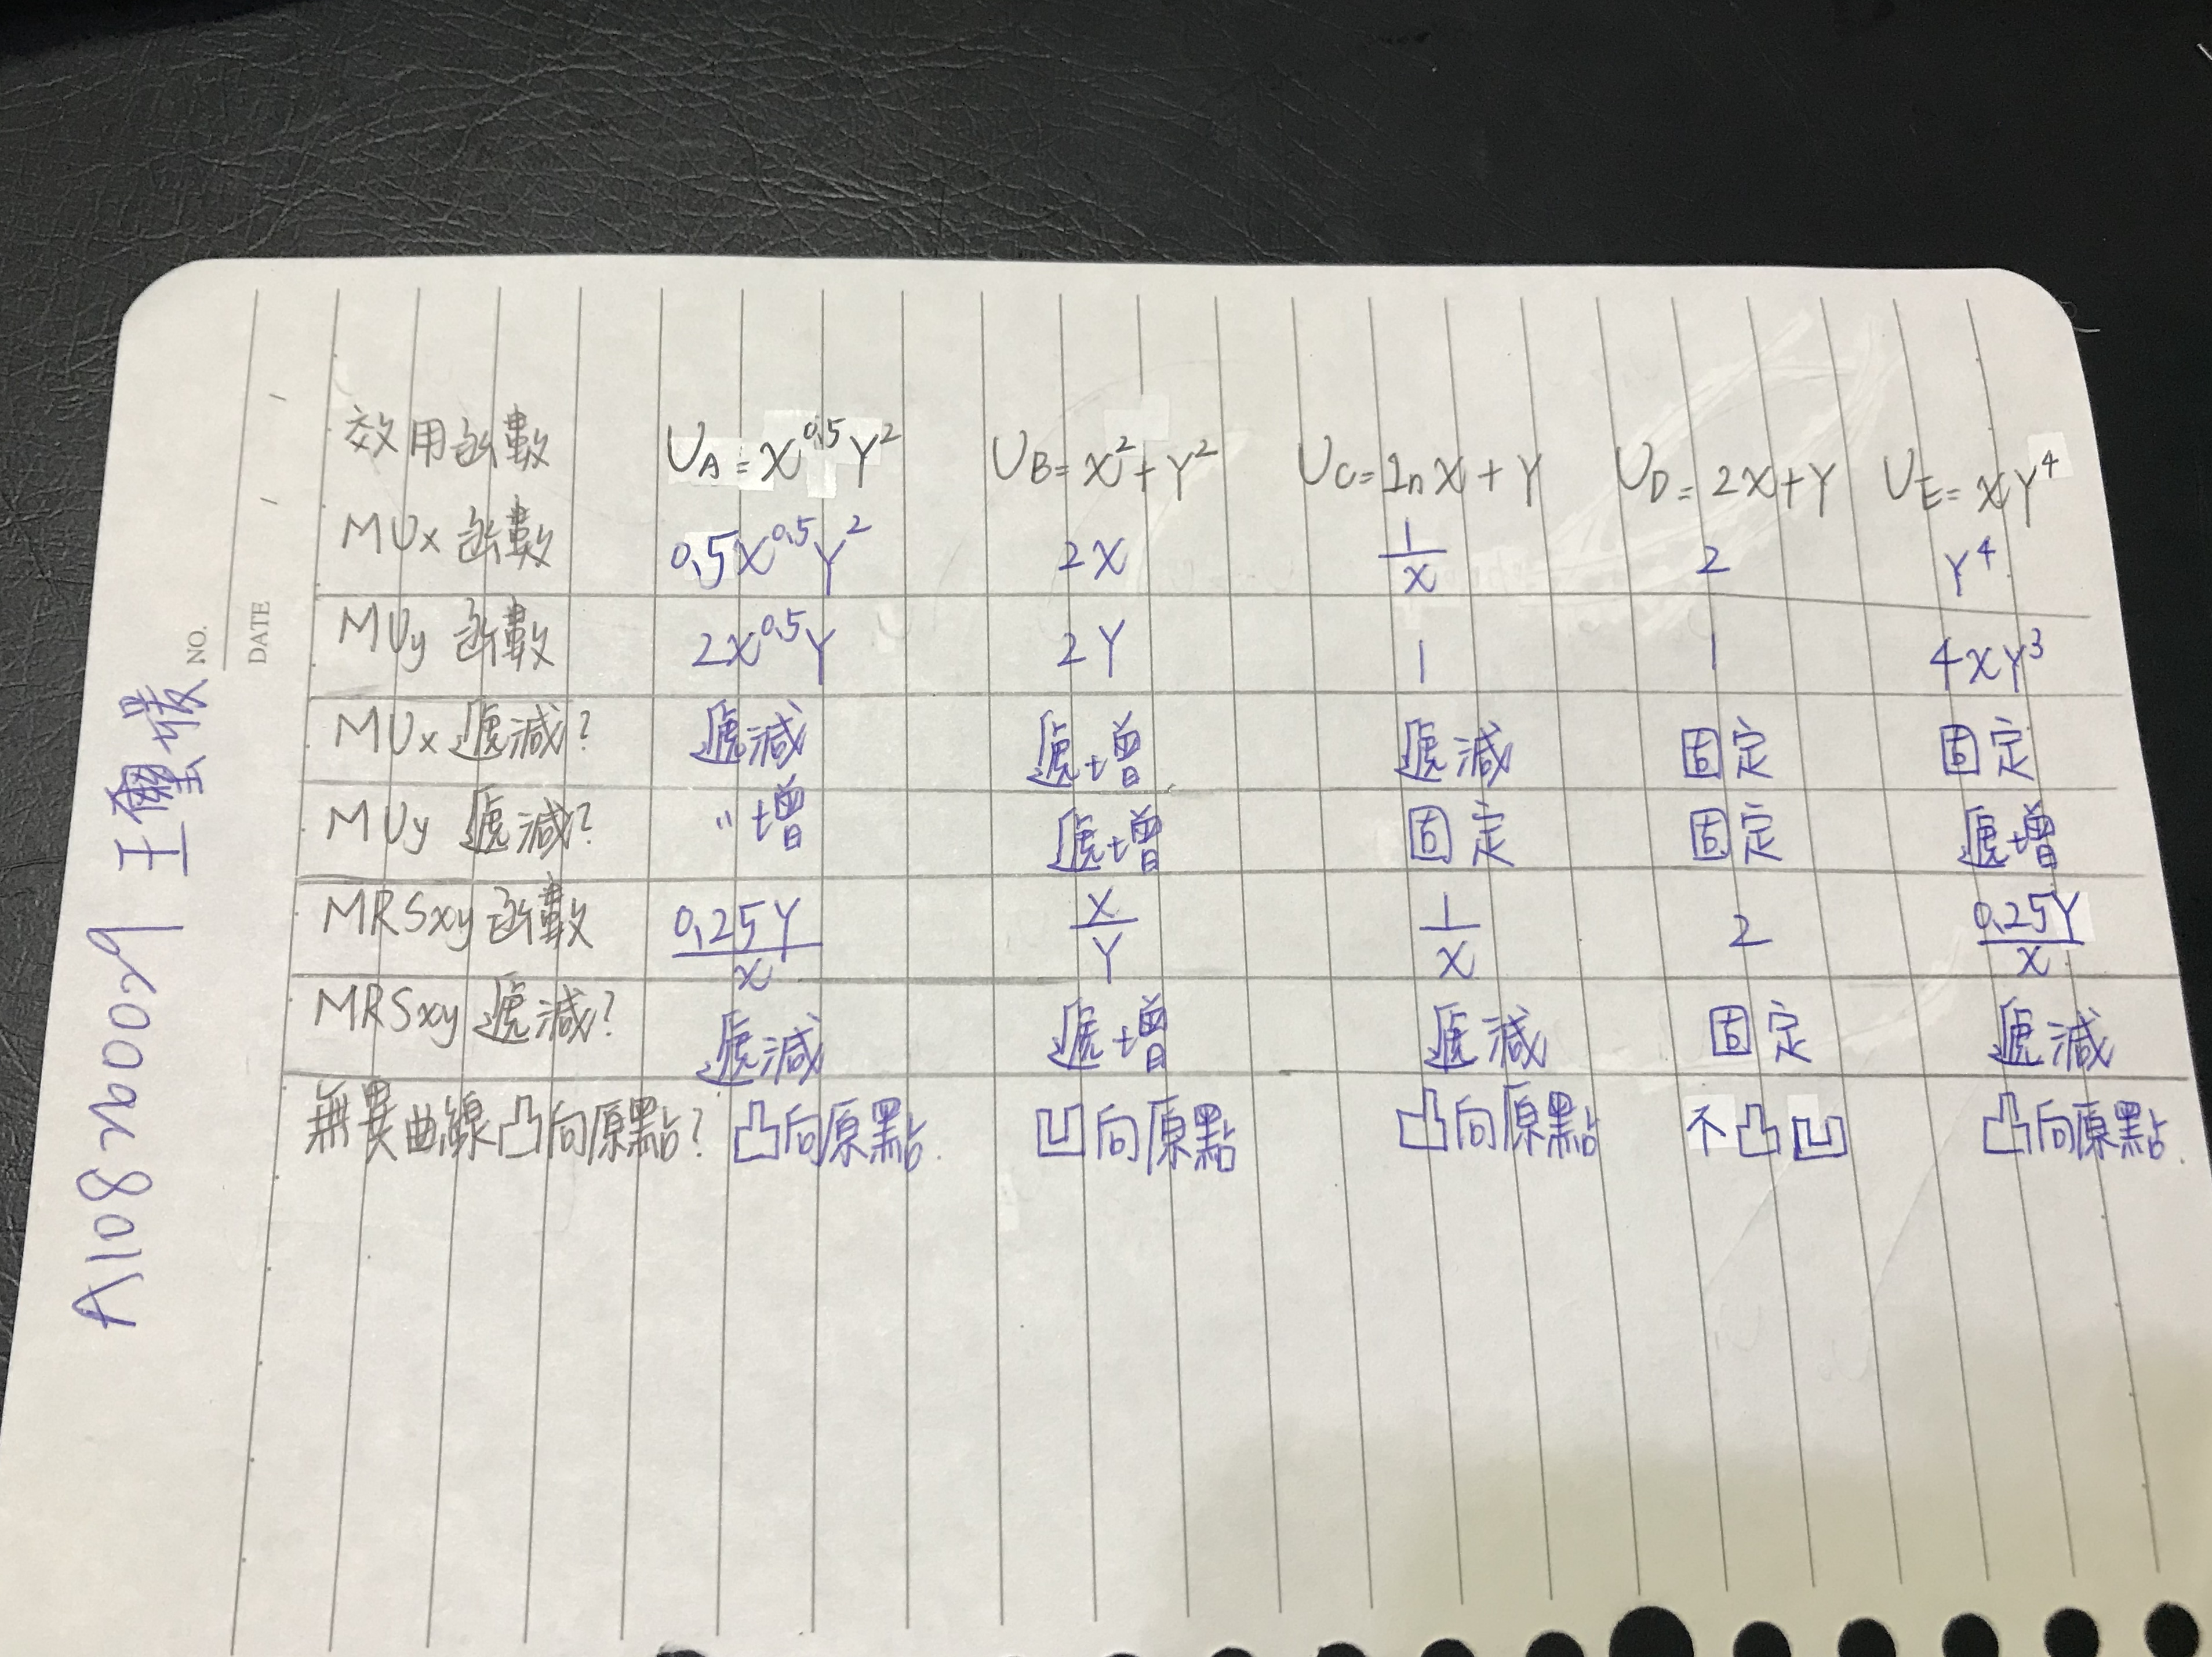 NO.
DATE / /
效用函數 UA=X^0.5Y² UB=X²+Y² UC=lnX+Y UD=2X+Y UE=XY⁴
MUx 函數 0.5X^0.5Y² 2X 1/X 2 Y⁴
MUy 函數 2X^0.5Y 2Y 1 1 4XY³
MUx 遞減? 遞減 遞增 遞減 固定 固定
MUy 遞減? "增 遞增 固定 固定 遞增
MRSxy 函數 0.25Y/X X/Y 1/X 2 0.25Y/X
MRSxy 遞減? 遞減 遞增 遞減 固定 遞減
無異曲線凸向原點? 凸向原點. 凹向原點 凸向原點 不凸凹 凸向原點.